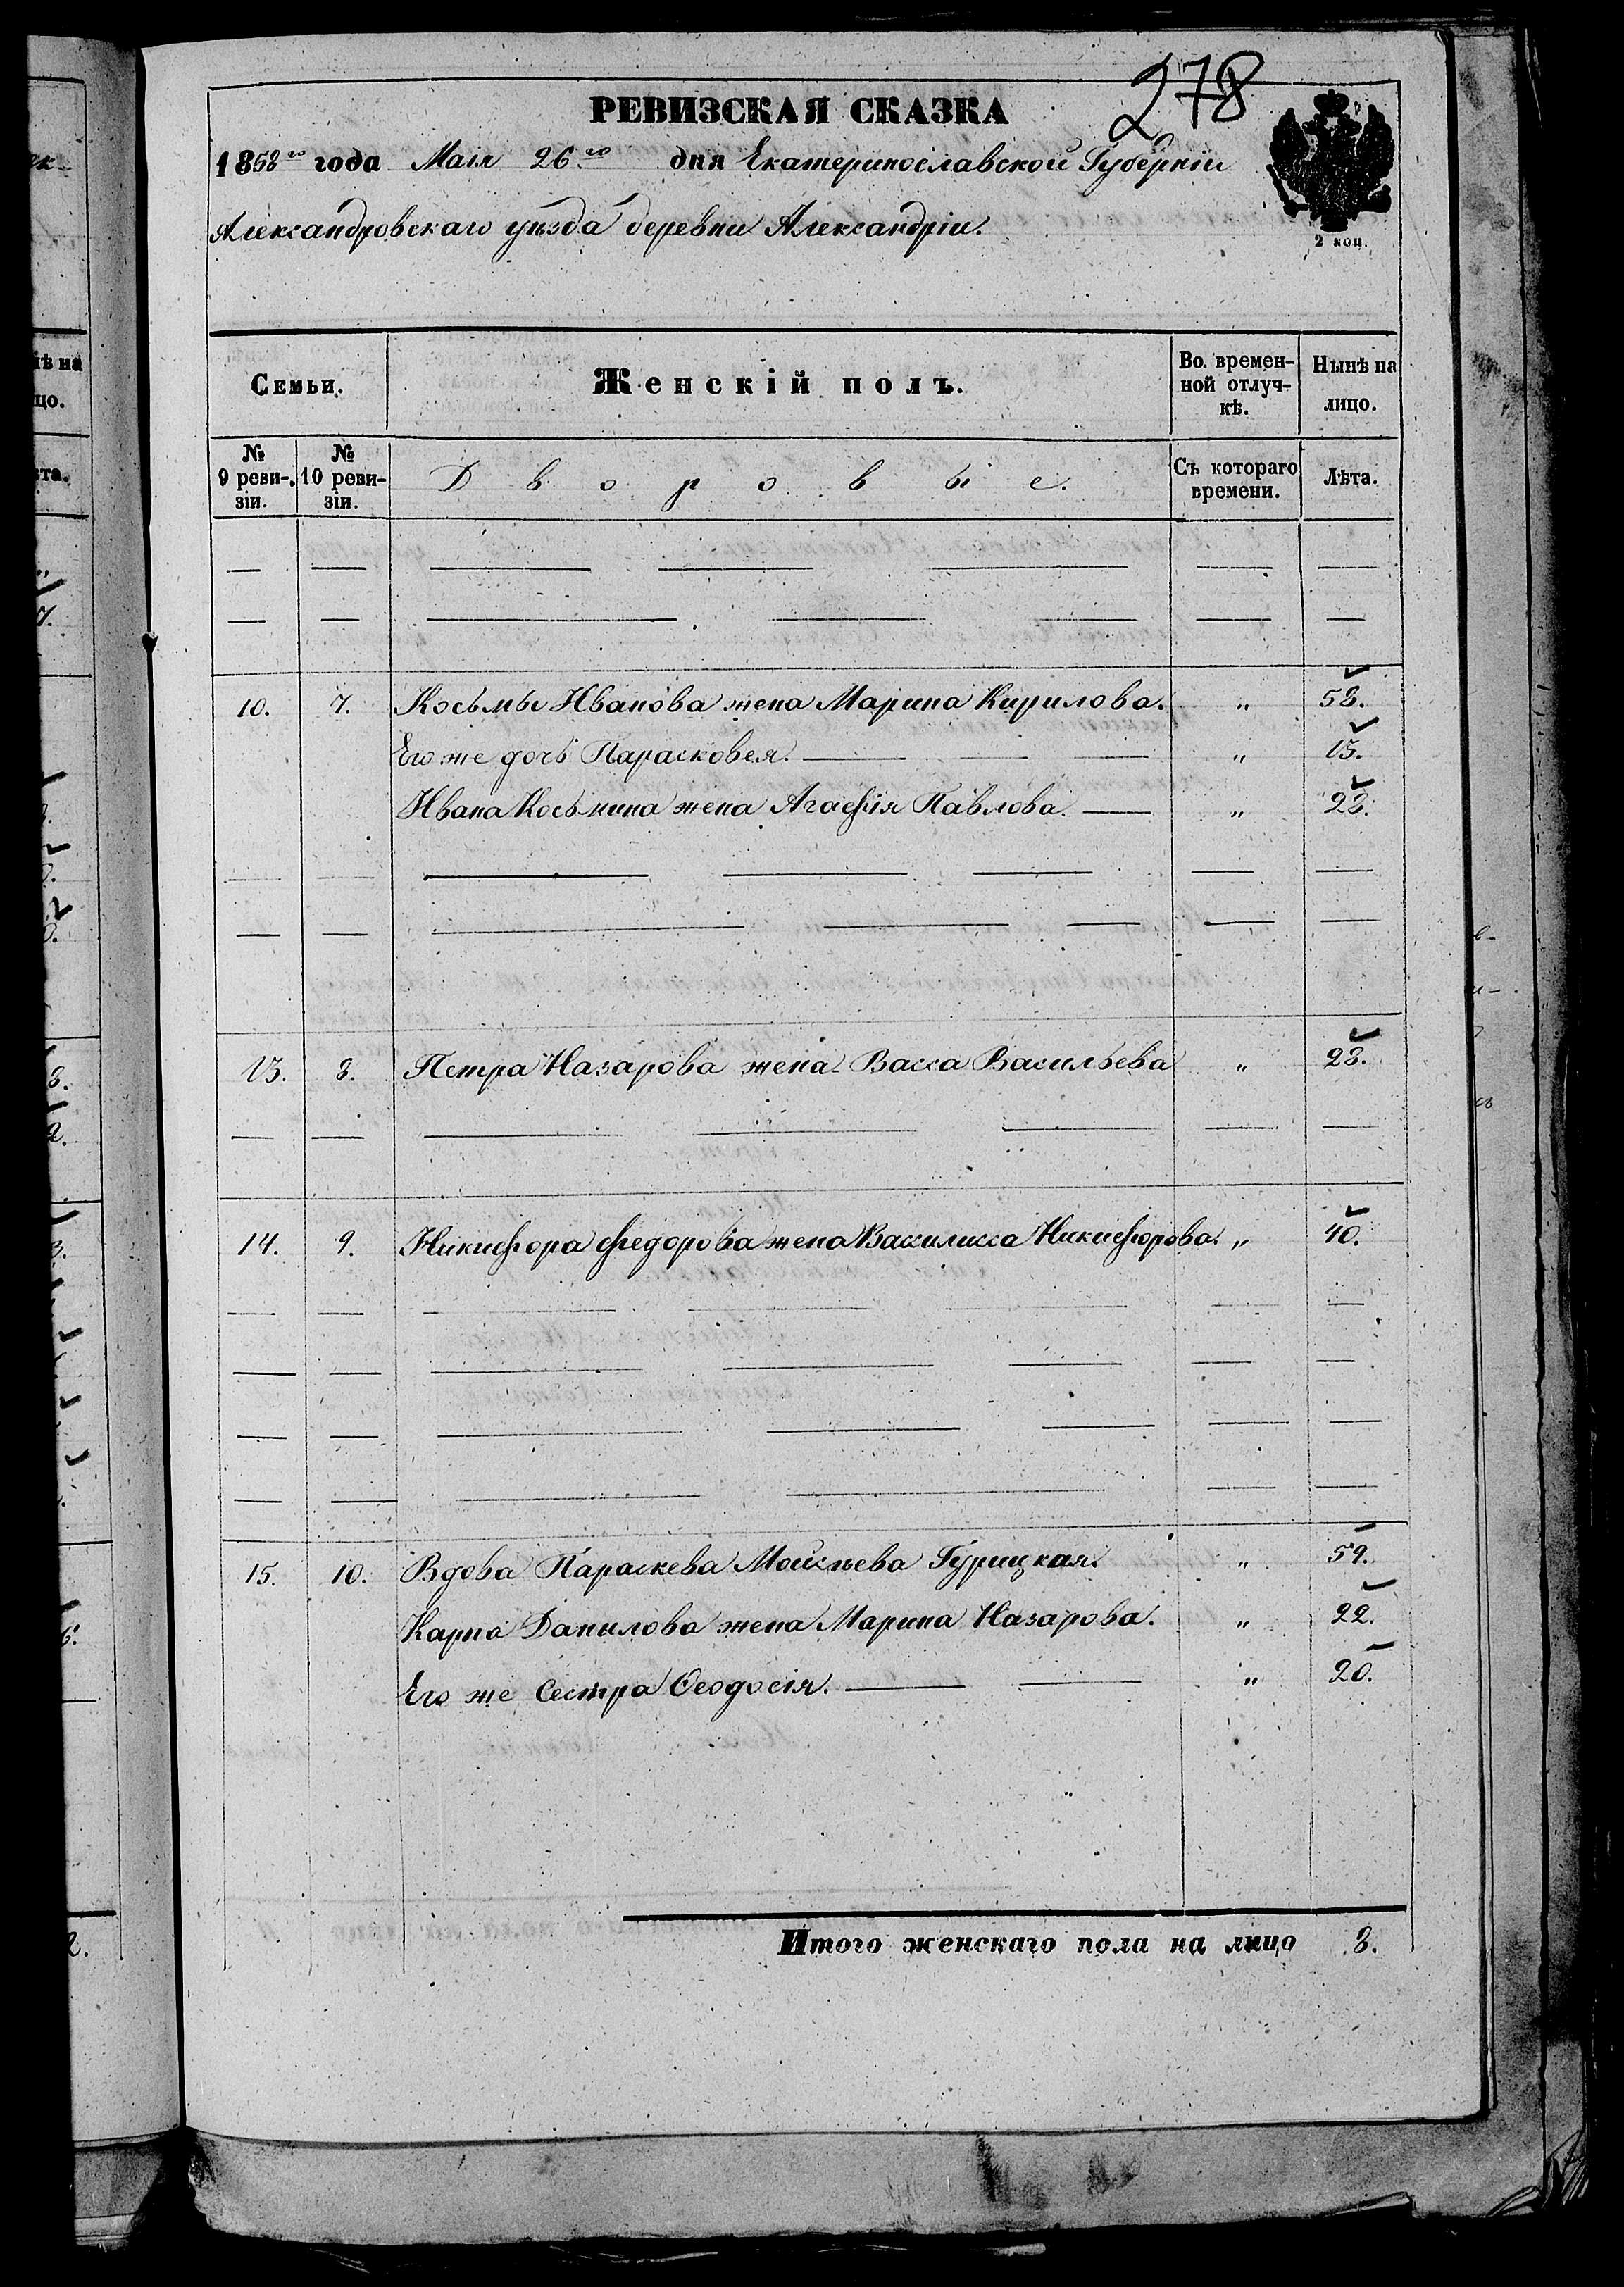 278
РЕВИЗСКАЯ СКАЗКА
1858го года Маія 26го дня Екатеринославской Губерніи
Александровскаго уѣзда деревни Александріи.
2 коп.
Семьи. Женскій полъ. Во. времен- Нынѣ на
ной отлуч- лицо.
кѣ.
№ № Дворовые. Съ котораго Лѣта.
9 реви- 10 реви- времени.
зіи. зіи.
10. 7. Косьмы Иванова жена Марина Кирилова. " 58.
Его же дочь Парасковея. " 15.
Ивана Косьмина жена Агафія Павлова. " 28.
13. 8. Петра Назарова жена Васса Васильева " 28.
14. 9. Никифора Федорова жена Василисса Никифорова. " 40.
15. 10. Вдова Параскева Моисѣева Гурицкая. " 59.
Карпа Данилова жена Марина Назарова. " 22.
Его же сестра Ѳеодосія. " 20.
Итого женскаго пола на лицо 8.